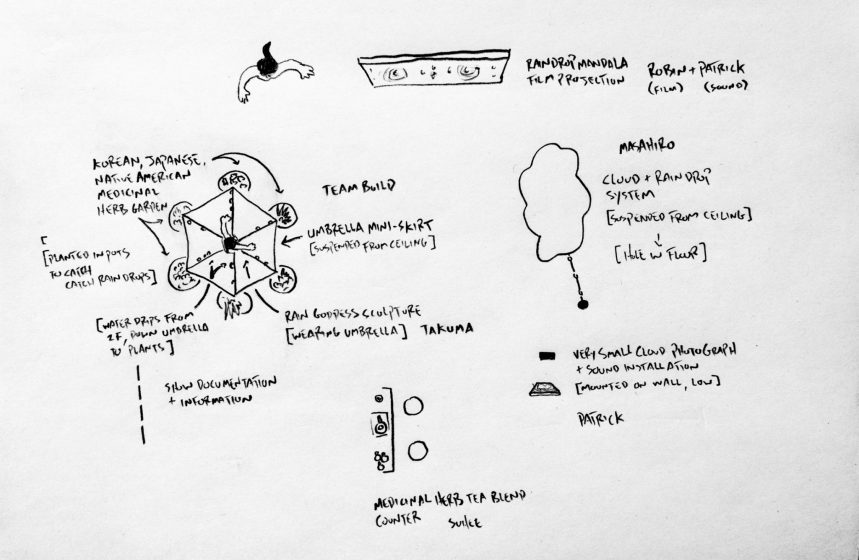 RAINDROP MANDALA
FILM PROJECTION
ROBIN + PATRICK
(FILM) (SOUND)
KOREAN, JAPANESE,
NATIVE AMERICAN
MEDICINAL
HERB GARDEN
TEAM BUILD
UMBRELLA MINI-SKIRT
[SUSPENDED FROM CEILING]
MASAHIRO
CLOUD + RAINDROP
SYSTEM
[SUSPENDED FROM CEILING]
[HOLE IN FLOOR]
[
[PLANTED IN POTS
TO CATCH
CATCH RAINDROPS]
[WATER DRIPS FROM
2F, DOWN UMBRELLA
TO PLANTS]
RAIN GODDESS SCULPTURE
[WEARING UMBRELLA] TAKUMA
SHOW DOCUMENTATION
+ INFORMATION
VERY SMALL CLOUD PHOTOGRAPH
+ SOUND INSTALLATION
[MOUNTED ON WALL, LOW]
PATRICK
MEDICINAL HERB TEA BLEND
COUNTER